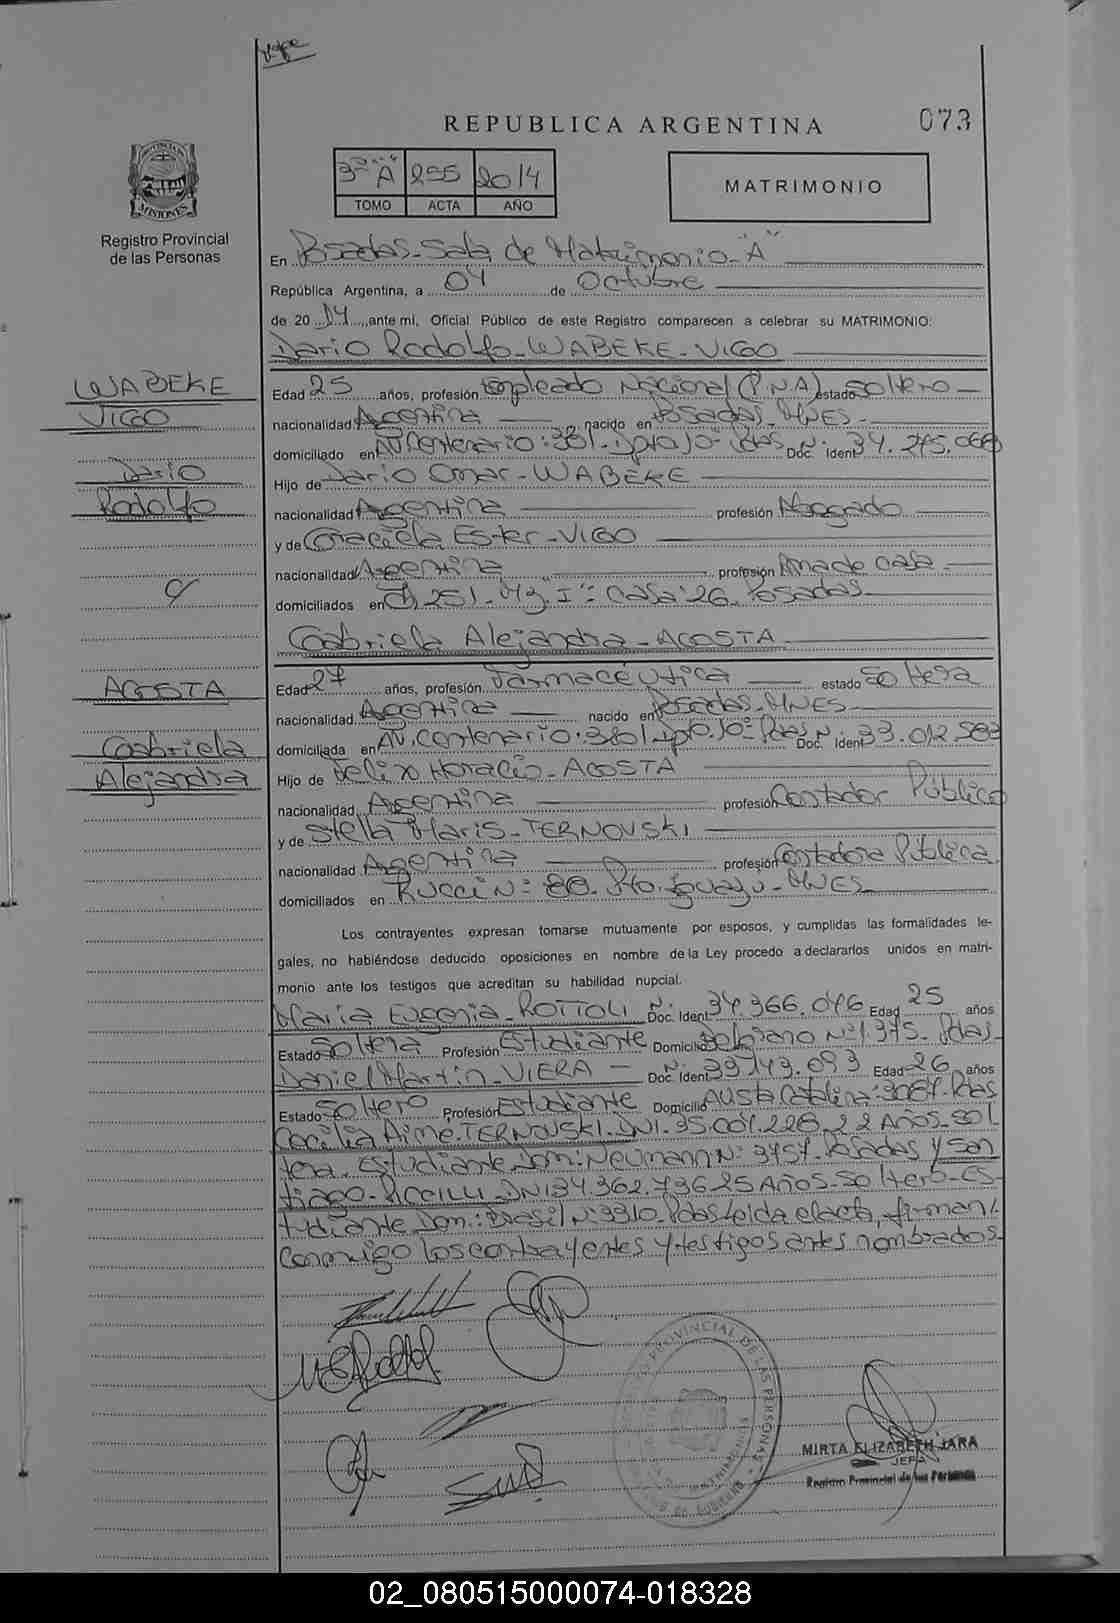 073
REPUBLICA ARGENTINA
3º "A" 255 2014
TOMO ACTA AÑO
MATRIMONIO
PROVINCIA DE MISIONES
Registro Provincial
de las Personas
En Posadas-Sala de Matrimonio-"A"
República Argentina, a 04 de Octubre
de 20 14, ante mi, Oficial Público de este Registro comparecen a celebrar su MATRIMONIO:
Dario Rodolfo-WABEKE-VIGO
WABEKE
VIGO
Dario
Rodolfo
Edad 25 años, profesión Empleado Nacional (P.N.A) estado Soltero
nacionalidad Argentina nacido en Posadas-MNES
domiciliado en AV. Centenario: 381-Dpto 10- Pdas Doc. Ident Nº: 34.275.068
Hijo de Dario Omar-WABEKE
nacionalidad Argentina profesión Abogado
y de Graciela Ester-VIGO
nacionalidad Argentina profesión Ama de casa
domiciliados en Ch 251-Mz. I": Casa 26. Posadas
Gabriela Alejandra-ACOSTA
ACOSTA
Gabriela
Alejandra
Edad 27 años, profesión Farmacéutica estado Soltera
nacionalidad Argentina nacido en Posadas-MNES
domiciliada en AV. Centenario: 381 Dpto. 10º Pdas Doc. Ident Nº: 33.012.583
Hijo de Felix Horacio-ACOSTA
nacionalidad Argentina profesión Contador Público
y de Stella Maris-TERNOVSKI
nacionalidad Argentina profesión Contadora Pública
domiciliados en Rucci Nº: 88. Pto. Iguazú-MNES
Los contrayentes expresan tomarse mutuamente por esposos, y cumplidas las formalidades le-
gales, no habiéndose deducido oposiciones en nombre de la Ley procedo a declararlos unidos en matri-
monio ante los testigos que acreditan su habilidad nupcial.
Maria Eugenia-ROTTOLI Doc. Ident Nº: 34.366.046 Edad 25 años
Estado Soltera Profesión Estudiante Domicilio Belgrano Nº 1.375-Pdas
Daniel Martin-VIERA Doc. Ident 33.143.093 Edad 26 años
Estado Soltero Profesión Estudiante Domicilio Austa Catalina: 3087-Pdas
Cecilia Aime-TERNOVSKI. DNI. 35.001.228-22 Años-Sol
tera. Estudiante Dom: Neumann Nº 3757-Posadas y San
tiago-PICCILLI-DNI 34.362.736-25 Años-Soltero-Es
tudiante Dom.: Brasil Nº 3310-Pdas leida el acta, firman
conmigo los contrayentes y testigos antes nombrados-
REGISTRO PROVINCIAL DE LAS PERSONAS
MIRTA ELIZABETH JARA
JEFA
Registro Provincial de las Personas
02_080515000074-018328